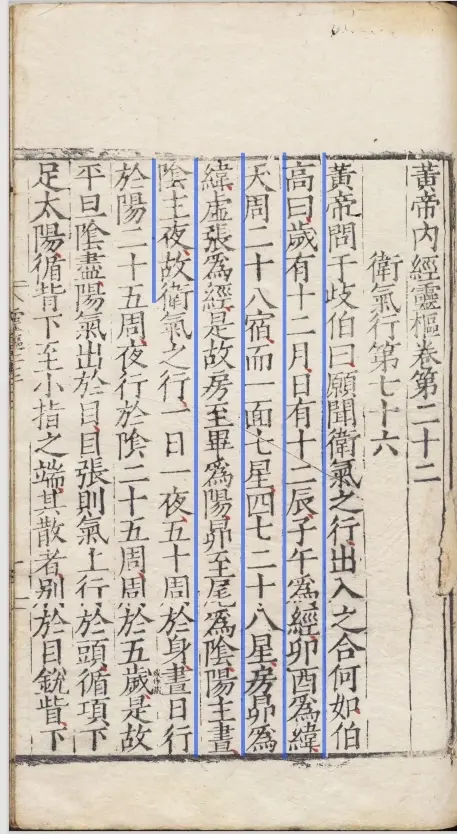 黃帝內經靈樞卷第二十二
衛氣行第七十六
黃帝問于歧伯曰願聞衛氣之行出入之合何如伯
高曰歲有十二月日有十二辰子午爲經卯酉爲緯
天周二十八宿而一面七星四七二十八星房昴爲
緯虛張爲經是故房至畢爲陽昴至尾爲隂陽主晝
隂主夜故衛氣之行一日一夜五十周於身晝日行
於陽二十五周夜行於隂二十五周周於五歲是故
平旦隂盡陽氣出於目目張則氣上行於頭循項下
足太陽循背下至小指之端其散者別於目銳眥下